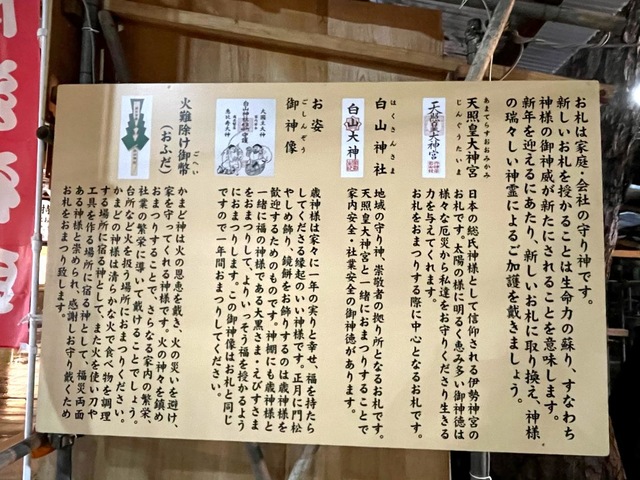 お札は家庭・会社の守り神です。
新しいお札を授かることは生命力の蘇り、すなわち
神様の御神威が新たにされることを意味します。
新年を迎えるにあたり、新しいお札に取り換え、神様
の瑞々しい神霊によるご加護を戴きましょう。
あまてらすおおみかみ
天照皇大神宮
じんぐうたいま
天照皇大神宮
日本の総氏神様として信仰される伊勢神宮の
お札です。太陽の様に明るく恵み多い御神徳は
様々な厄災から私達をお守りくださり生きる
力を与えてくれます。
お札をおまつりする際に中心となるお札です。
はくさんさま
白山神社
白山大神
地域の守り神、崇敬者の拠り所となるお札です。
天照皇大神宮と一緒におまつりすることで
家内安全・社業安全の御神徳があります。
お姿
ごしんぞう
御神像
大國主大神
白山神社守護
恵比寿大神
歳神様は家々に一年の実りと幸せ、福を持たら
してくださる縁起のいい神様です。正月に門松
やしめ飾り、鏡餅をお飾りするのは歳神様を
歓迎するためのものです。神棚にも歳神様と
一緒に福の神様である大黒さま・えびすさま
をおまつりして、よりいっそう福を授かるよう
におまつりします。この御神像はお札と同じ
ですので一年間おまつりしてください。
ごへい
火難除け御幣
(おふだ)
かまど神は火の恩恵を戴き、火の災いを避け、
家を守ってくれる神様です。火の神々を鎮め
おまつりすることで、さらなる家内の繁栄、
社業の繁栄に導いて戴けることでしょう。
台所など火を扱う場所におまつりください。
かまどの神様は清らかな火で食べ物を調理
する場所に宿る神として、また火を使い刀や
工具を作る場所に宿る神として、福災両面
ある神様と崇められ、感謝しお守り戴くため
お札をおまつり致します。